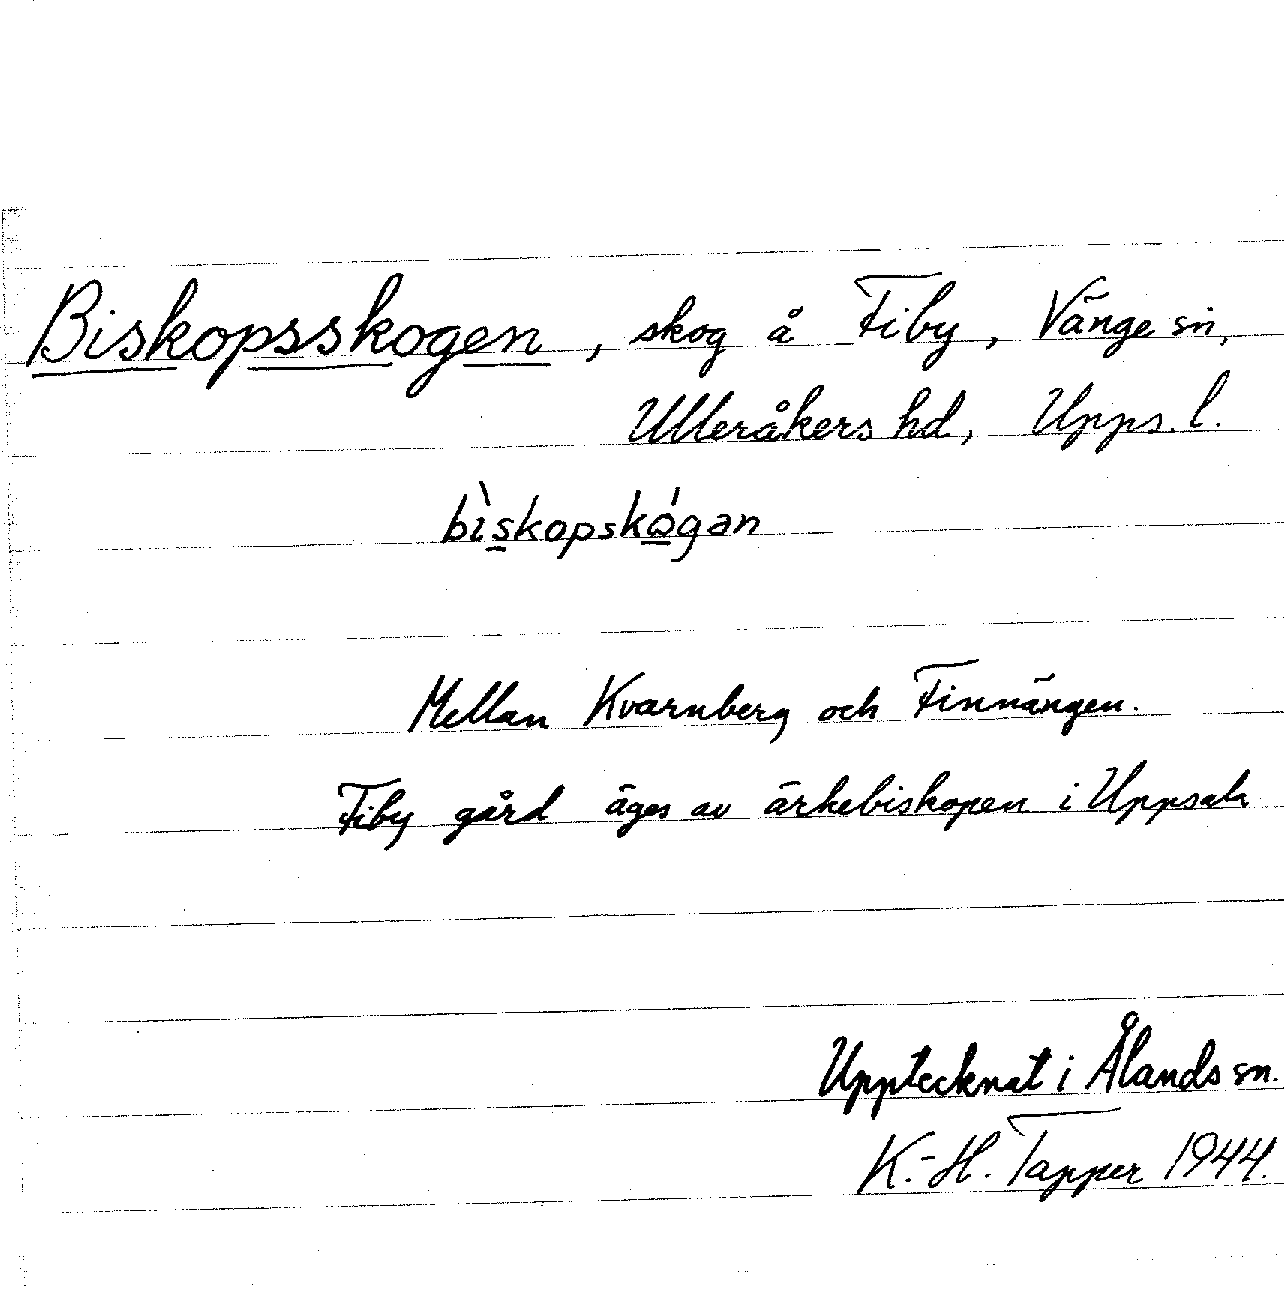 Biskopsskogen, skog å Fiby, Vänge sn,
Ulleråkers hd, Upps. l.
bìskopskógan
Mellan Kvarnberg och Finnängen.
Fiby gård äges av ärkebiskopen i Uppsala
Upptecknat i Ålands sn.
K.-H. Tapper 1944.